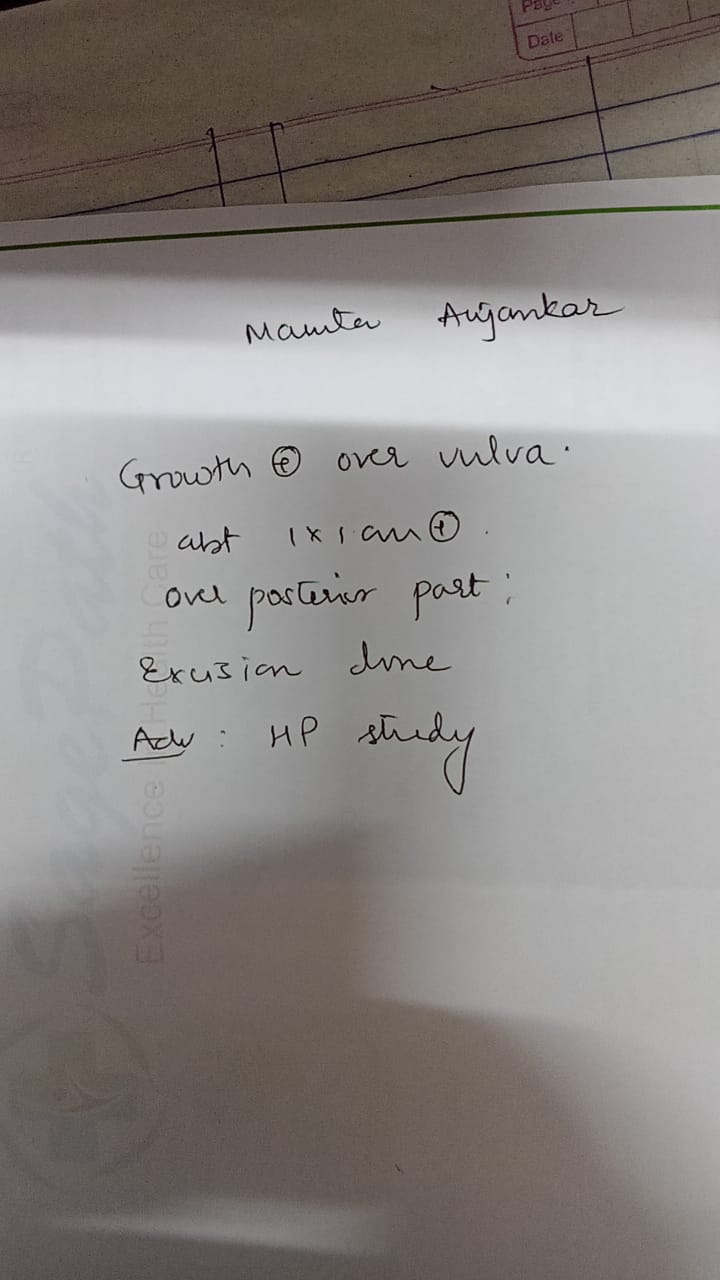 Page
Date
Mamta Aujankar
Growth ⊕ over vulva.
abt 1x1 cm ⊕.
over posterior part;
Excision done
Adv : HP study
SagePath
Excellence Health Care